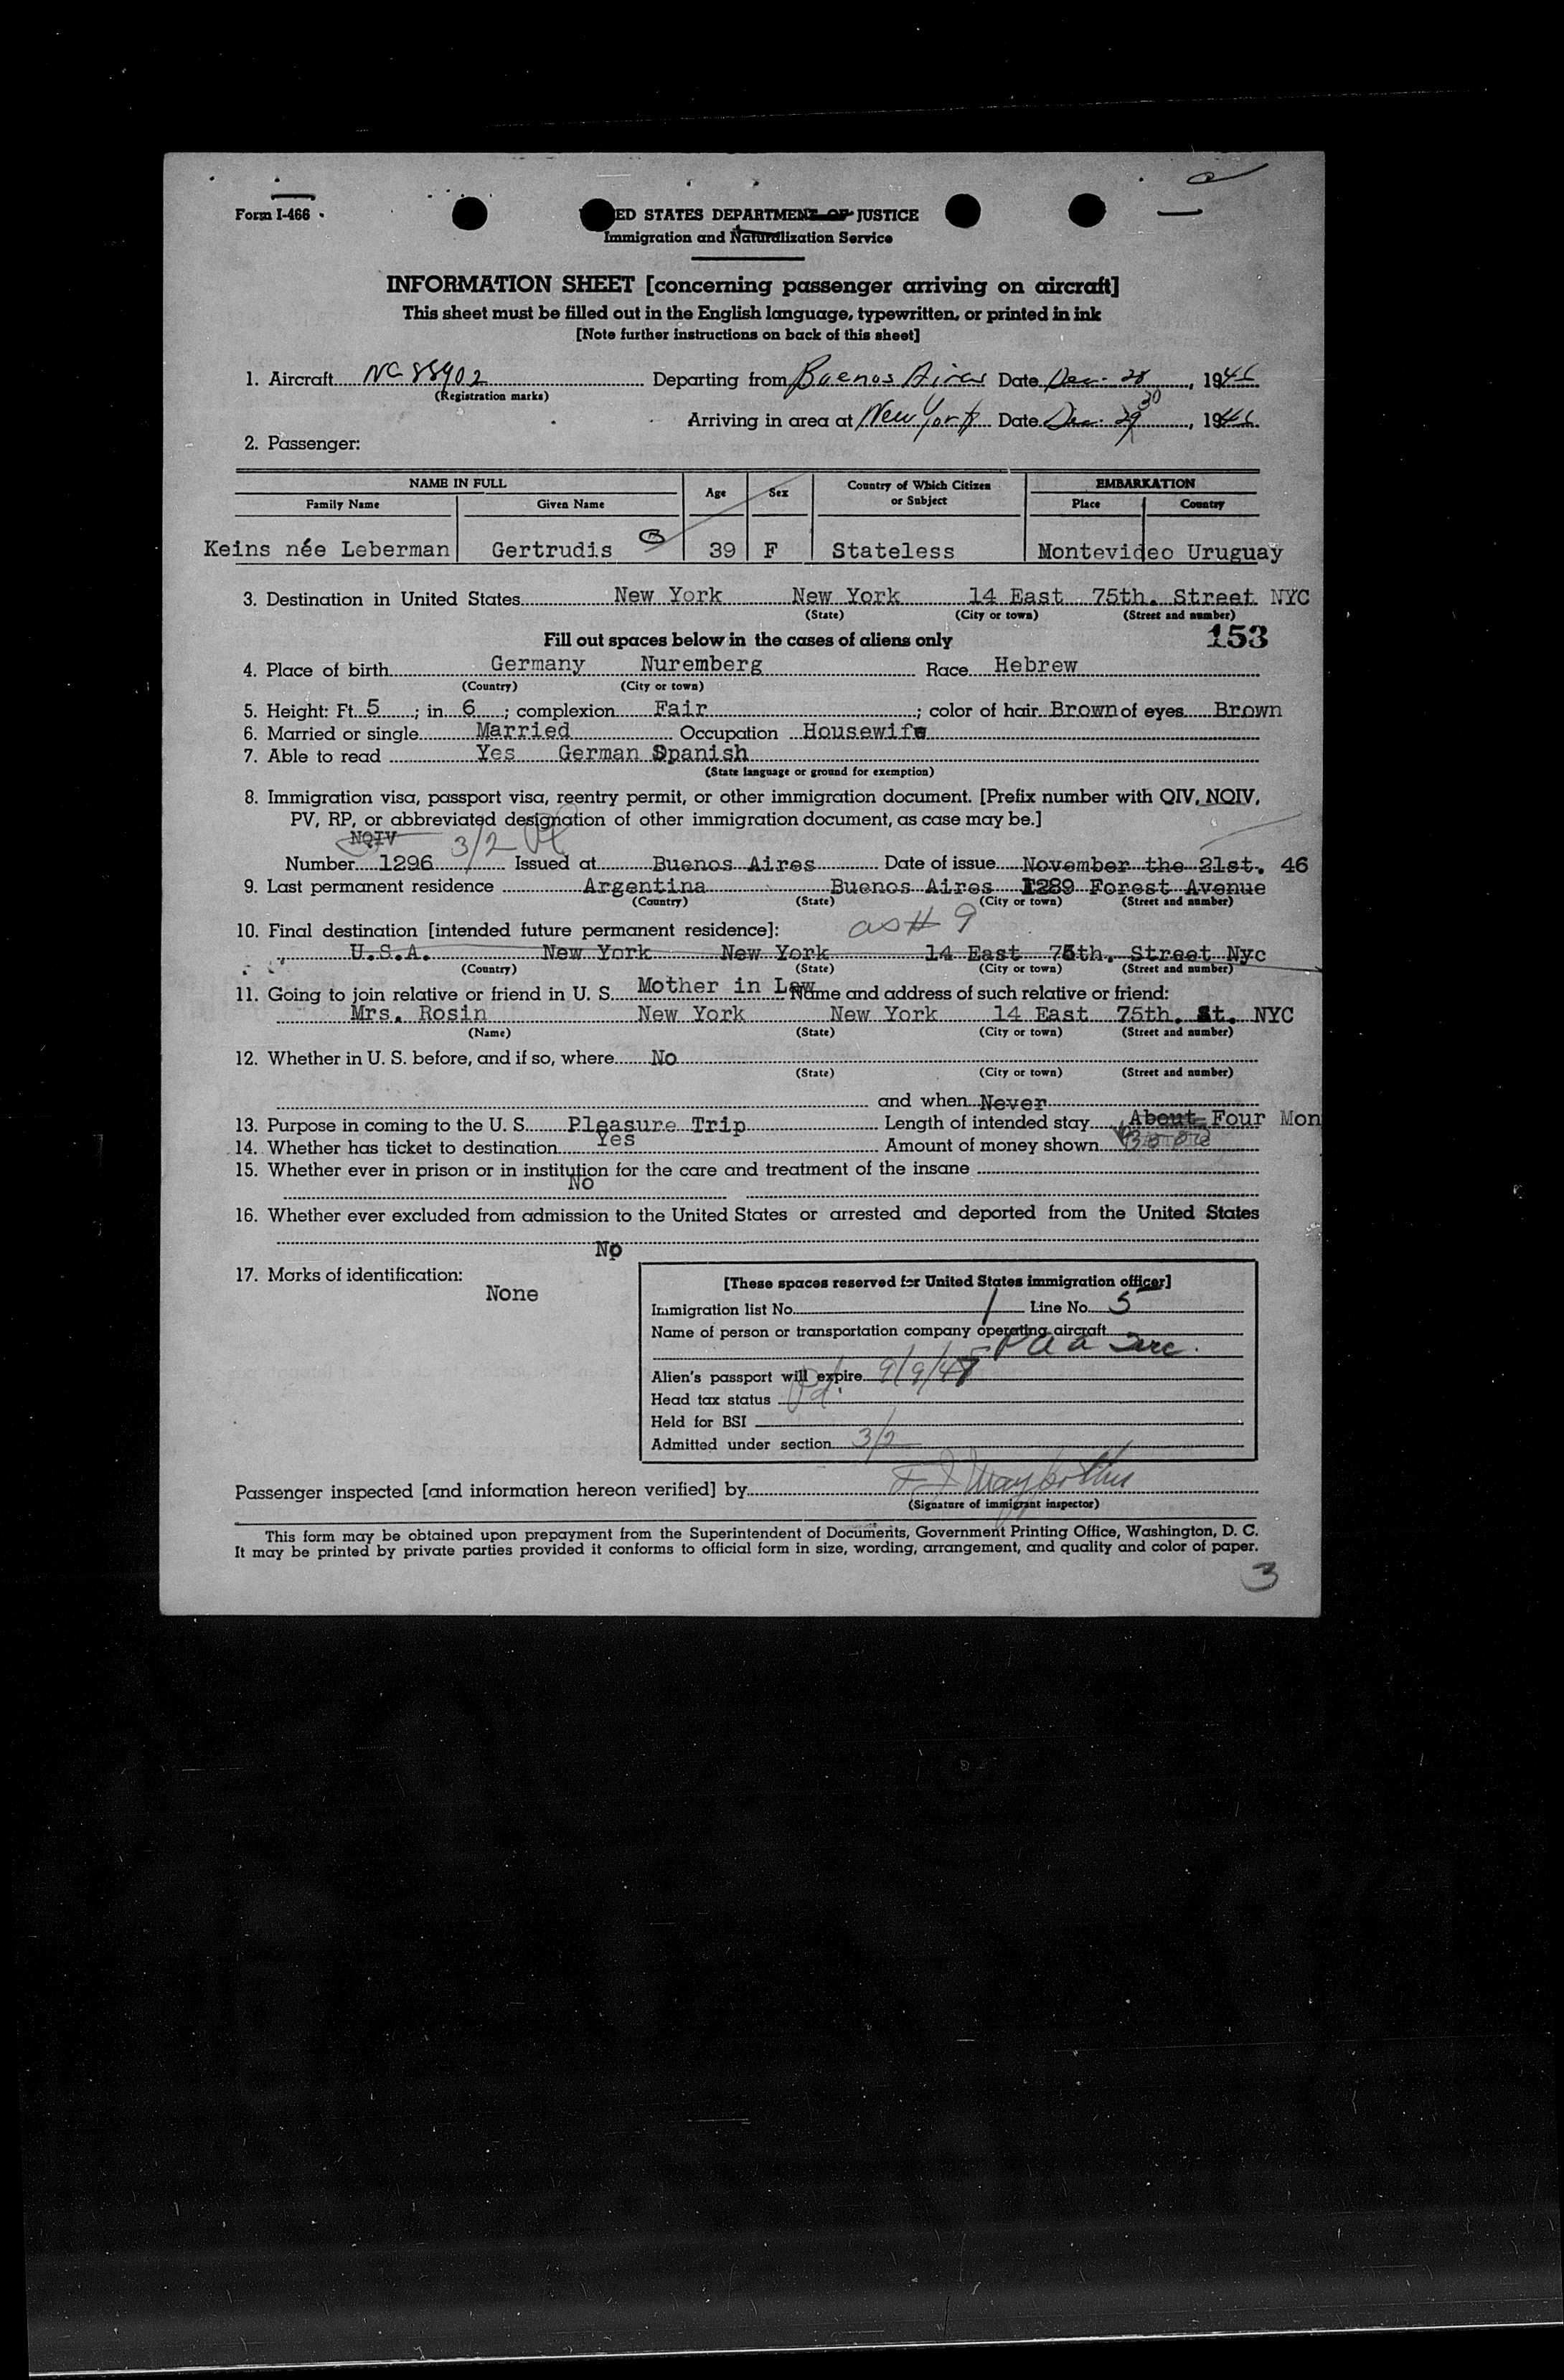 Form I-466
ED STATES DEPARTMENT OF JUSTICE
Immigration and Naturalization Service
INFORMATION SHEET [concerning passenger arriving on aircraft]
This sheet must be filled out in the English language, typewritten, or printed in ink
[Note further instructions on back of this sheet]
1. Aircraft NC 88902 Departing from Buenos Aires Date Dec. 28, 1946
(Registration marks)
Arriving in area at New York Date Dec. 29 30, 1946
2. Passenger:
NAME IN FULL Age Sex Country of Which Citizen or Subject EMBARKATION
Family Name Given Name Place Country
Keins née Leberman Gertrudis 39 F Stateless Montevideo Uruguay
3. Destination in United States New York New York 14 East 75th. Street NYC
(State) (City or town) (Street and number)
Fill out spaces below in the cases of aliens only 153
4. Place of birth Germany Nuremberg Race Hebrew
(Country) (City or town)
5. Height: Ft. 5; in. 6; complexion Fair; color of hair Brown of eyes Brown
6. Married or single Married Occupation Housewife
7. Able to read Yes German Spanish
(State language or ground for exemption)
8. Immigration visa, passport visa, reentry permit, or other immigration document. [Prefix number with QIV, NQIV,
PV, RP, or abbreviated designation of other immigration document, as case may be.]
NQIV 3/2
Number 1296 Issued at Buenos Aires Date of issue November the 21st. 46
9. Last permanent residence Argentina Buenos Aires 1289 Forest Avenue
(Country) (State) (City or town) (Street and number)
10. Final destination [intended future permanent residence]: as # 9
U.S.A. New York New York 14 East 75th. Street Nyc
(Country) (State) (City or town) (Street and number)
11. Going to join relative or friend in U. S. Mother in Law Name and address of such relative or friend:
Mrs. Rosin New York New York 14 East 75th. St. NYC
(Name) (State) (City or town) (Street and number)
12. Whether in U. S. before, and if so, where No
(State) (City or town) (Street and number)
and when Never
13. Purpose in coming to the U. S. Pleasure Trip Length of intended stay About Four Mon
14. Whether has ticket to destination Yes Amount of money shown
15. Whether ever in prison or in institution for the care and treatment of the insane
No
16. Whether ever excluded from admission to the United States or arrested and deported from the United States
No
17. Marks of identification:
None
[These spaces reserved for United States immigration officer]
Immigration list No. 1 Line No. 5
Name of person or transportation company operating aircraft
P a a Inc.
Alien's passport will expire 9/9/48
Head tax status Pd.
Held for BSI
Admitted under section 3/2
Passenger inspected [and information hereon verified] by
(Signature of immigrant inspector)
This form may be obtained upon prepayment from the Superintendent of Documents, Government Printing Office, Washington, D. C.
It may be printed by private parties provided it conforms to official form in size, wording, arrangement, and quality and color of paper.
3